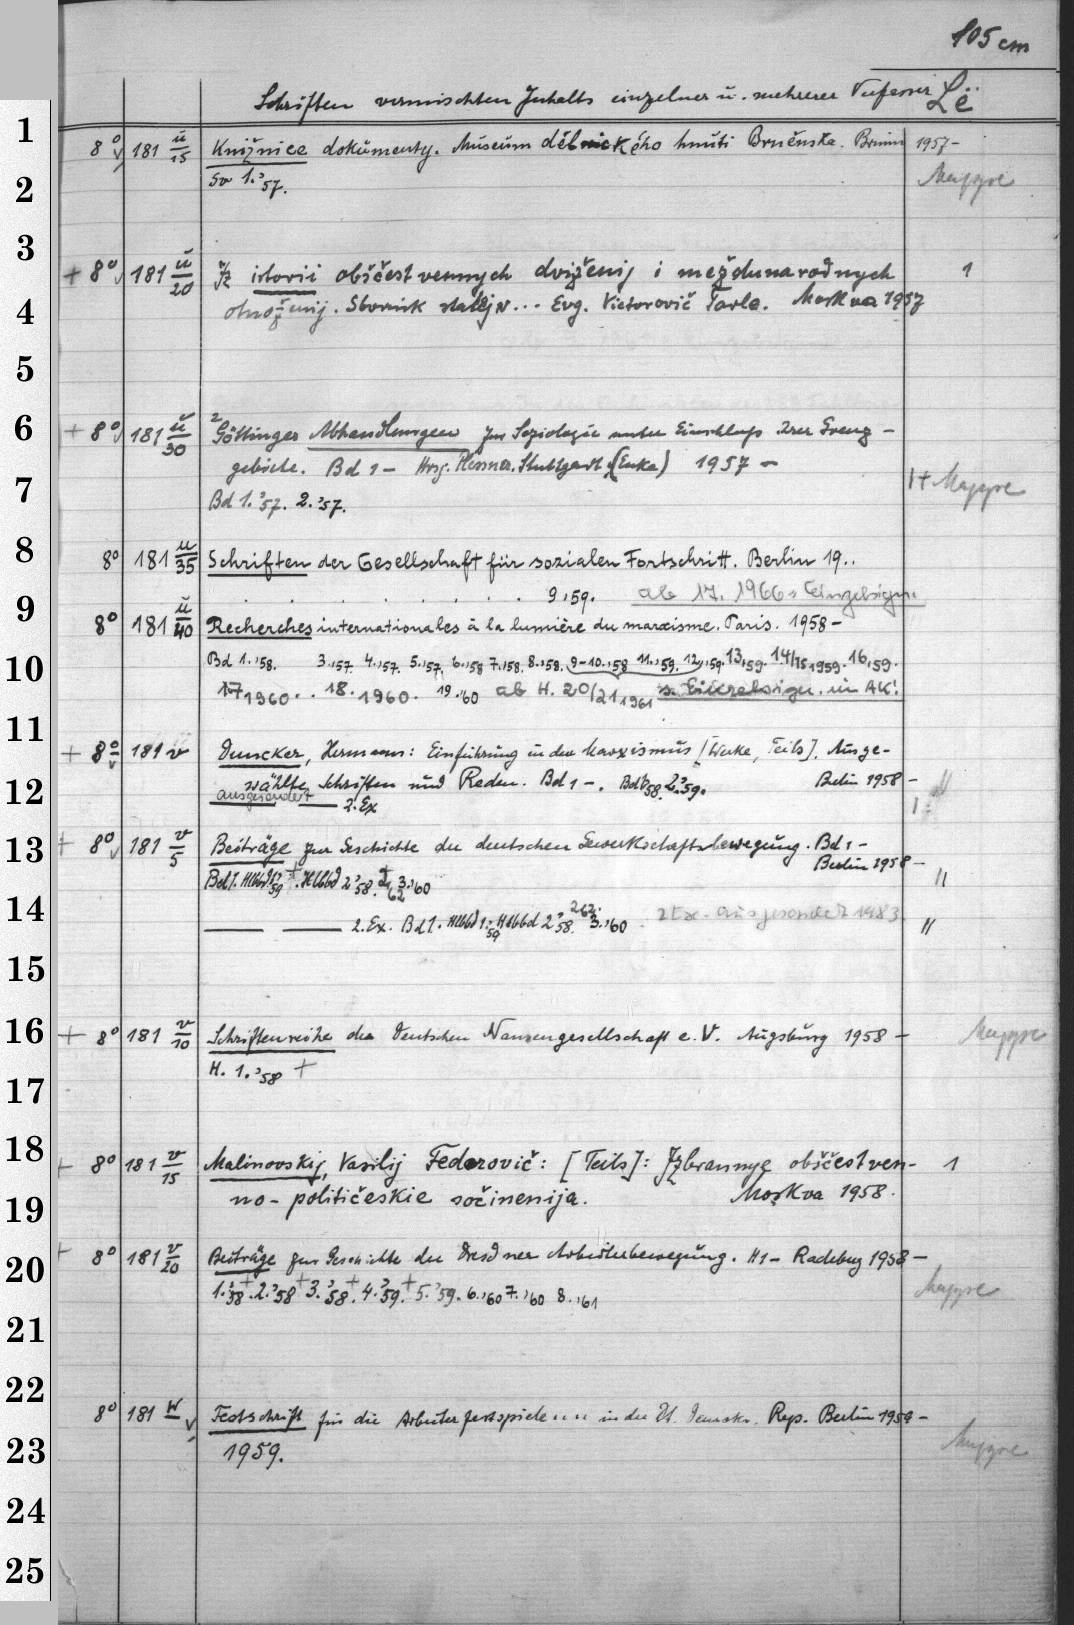 105 cm
Schriften vermischten Inhalts einzelner u. mehrerer Verfasser Lë
1
8° 181 u/15 Knižnice dokumenty. Museum dělnického hnuti Brněnska. Brünn 1957-
2
So 1.'57. Mappe
3
+ 8° 181 u/20 Iz istorii obščestvennych dviženij i meždunarodnych 1
4
otnošenij. Sbornik statej v... Evg. Victorovič Tarle. Moskva 1957
5
6
+ 8° 181 u/30 Göttinger Abhandlungen zur Soziologie unter Einschluß ihrer Grenz-
gebiete. Bd 1 - Hrsg. Plessner. Stuttgart (Enke) 1957 -
7
1+ Mappe
Bd 1.'57. 2.'57.
8
8° 181 u/35 Schriften der Gesellschaft für sozialen Fortschritt. Berlin 19..
9
9,59. ab 17. 1966 s. Einzelsign.
8° 181 u/40 Recherches internationales à la lumière du marxisme. Paris. 1958-
10
Bd 1.'58. 3.'57 4.'57. 5.'57, 6.'58 7.'58. 8.'58. 9-10.'58 11.'59. 12.'59. 13,59. 14/15 1959. 16,59.
17 1960.. 18. 1960. 19.'60 ab H. 20/21 1961 s. Einzelsign. im AK!
11
+ 8° 181 v Duncker, Hermann: Einführung in den Marxismus [Werke, Teils]. Ausge-
12
wählte Schriften und Reden. Bd 1 -. Bd 1.'58. 2.'59. Berlin 1958 -
ausgesondert 2. Ex
13
+ 8° 181 v/5 Beiträge zur Geschichte der deutschen Gewerkschaftsbewegung. Bd 1 -
Berlin 1958 -
Bd 1. Hlbbd 1.'59 +. Hlbbd 2.'58. 2.62 3.'60 "
14
2. Ex. Bd 1. Hlbbd 1.'59 Hlbbd 2.'58. 2.62. 3.'60 2 Ex. ausgesondert 1983 "
15
16
+ 8° 181 v/10 Schriftenreihe der Deutschen Nansengesellschaft e. V. Augsburg 1958 - Mappe
H. 1.'58 +
17
18
+ 8° 181 v/15 Malinovskij, Vasilij Fedorovič: [Teils]: Izbrannye obščestven- 1
19
no-političeskie sočinenija. Moskva 1958.
20
+ 8° 181 v/20 Beiträge zur Geschichte der Dresdner Arbeiterbewegung. H 1 - Radeburg 1958 -
1.'58 + 2.'58 + 3.'58 + 4.'59. + 5.'59. 6.'60 7.'60 8.'61 Mappe
21
22
8° 181 w Festschrift für die Arbeiterfestspiele ... in der Dt. Demokr. Rep. Berlin 1959 -
23
1959. Mappe
24
25